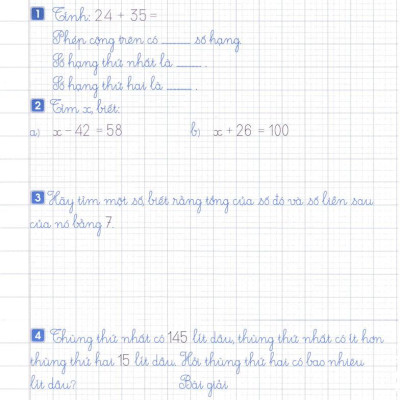 1 Tính: 24 + 35 =
Phép cộng trên có ___ số hạng.
Số hạng thứ nhất là ___.
Số hạng thứ hai là ___.
2 Tìm x, biết:
a) x - 42 = 58 b) x + 26 = 100
3 Hãy tìm một số, biết rằng tổng của số đó và số liền sau
của nó bằng 7.
4 Thùng thứ nhất có 145 lít dầu, thùng thứ nhất có ít hơn
thùng thứ hai 15 lít dầu. Hỏi thùng thứ hai có bao nhiêu
lít dầu?
Bài giải